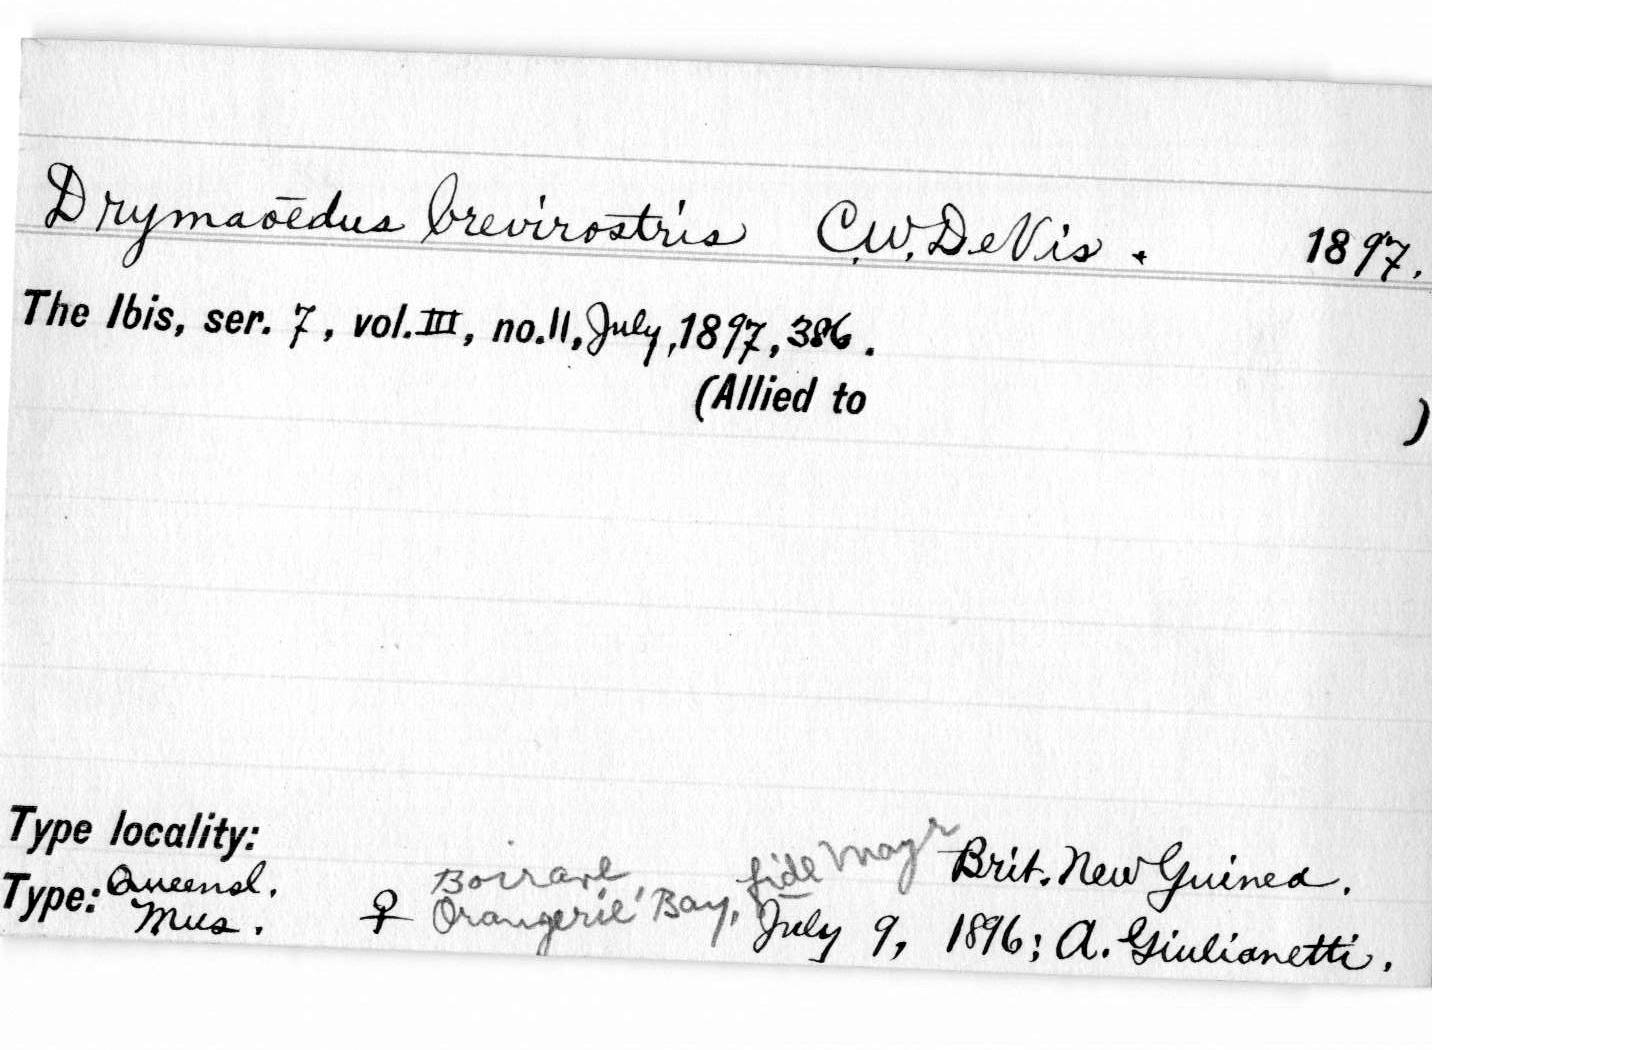 Drymaoedus brevirostris C.W. DeVis. 1897.
The Ibis, ser. 7, vol. III, no. 11, July, 1897, 386.
(Allied to )
Type locality: Boirave fide Mayr Brit. New Guinea.
Type: Queensl. Mus. ♀ Orangerie Bay, July 9, 1896; A. Giulianetti.